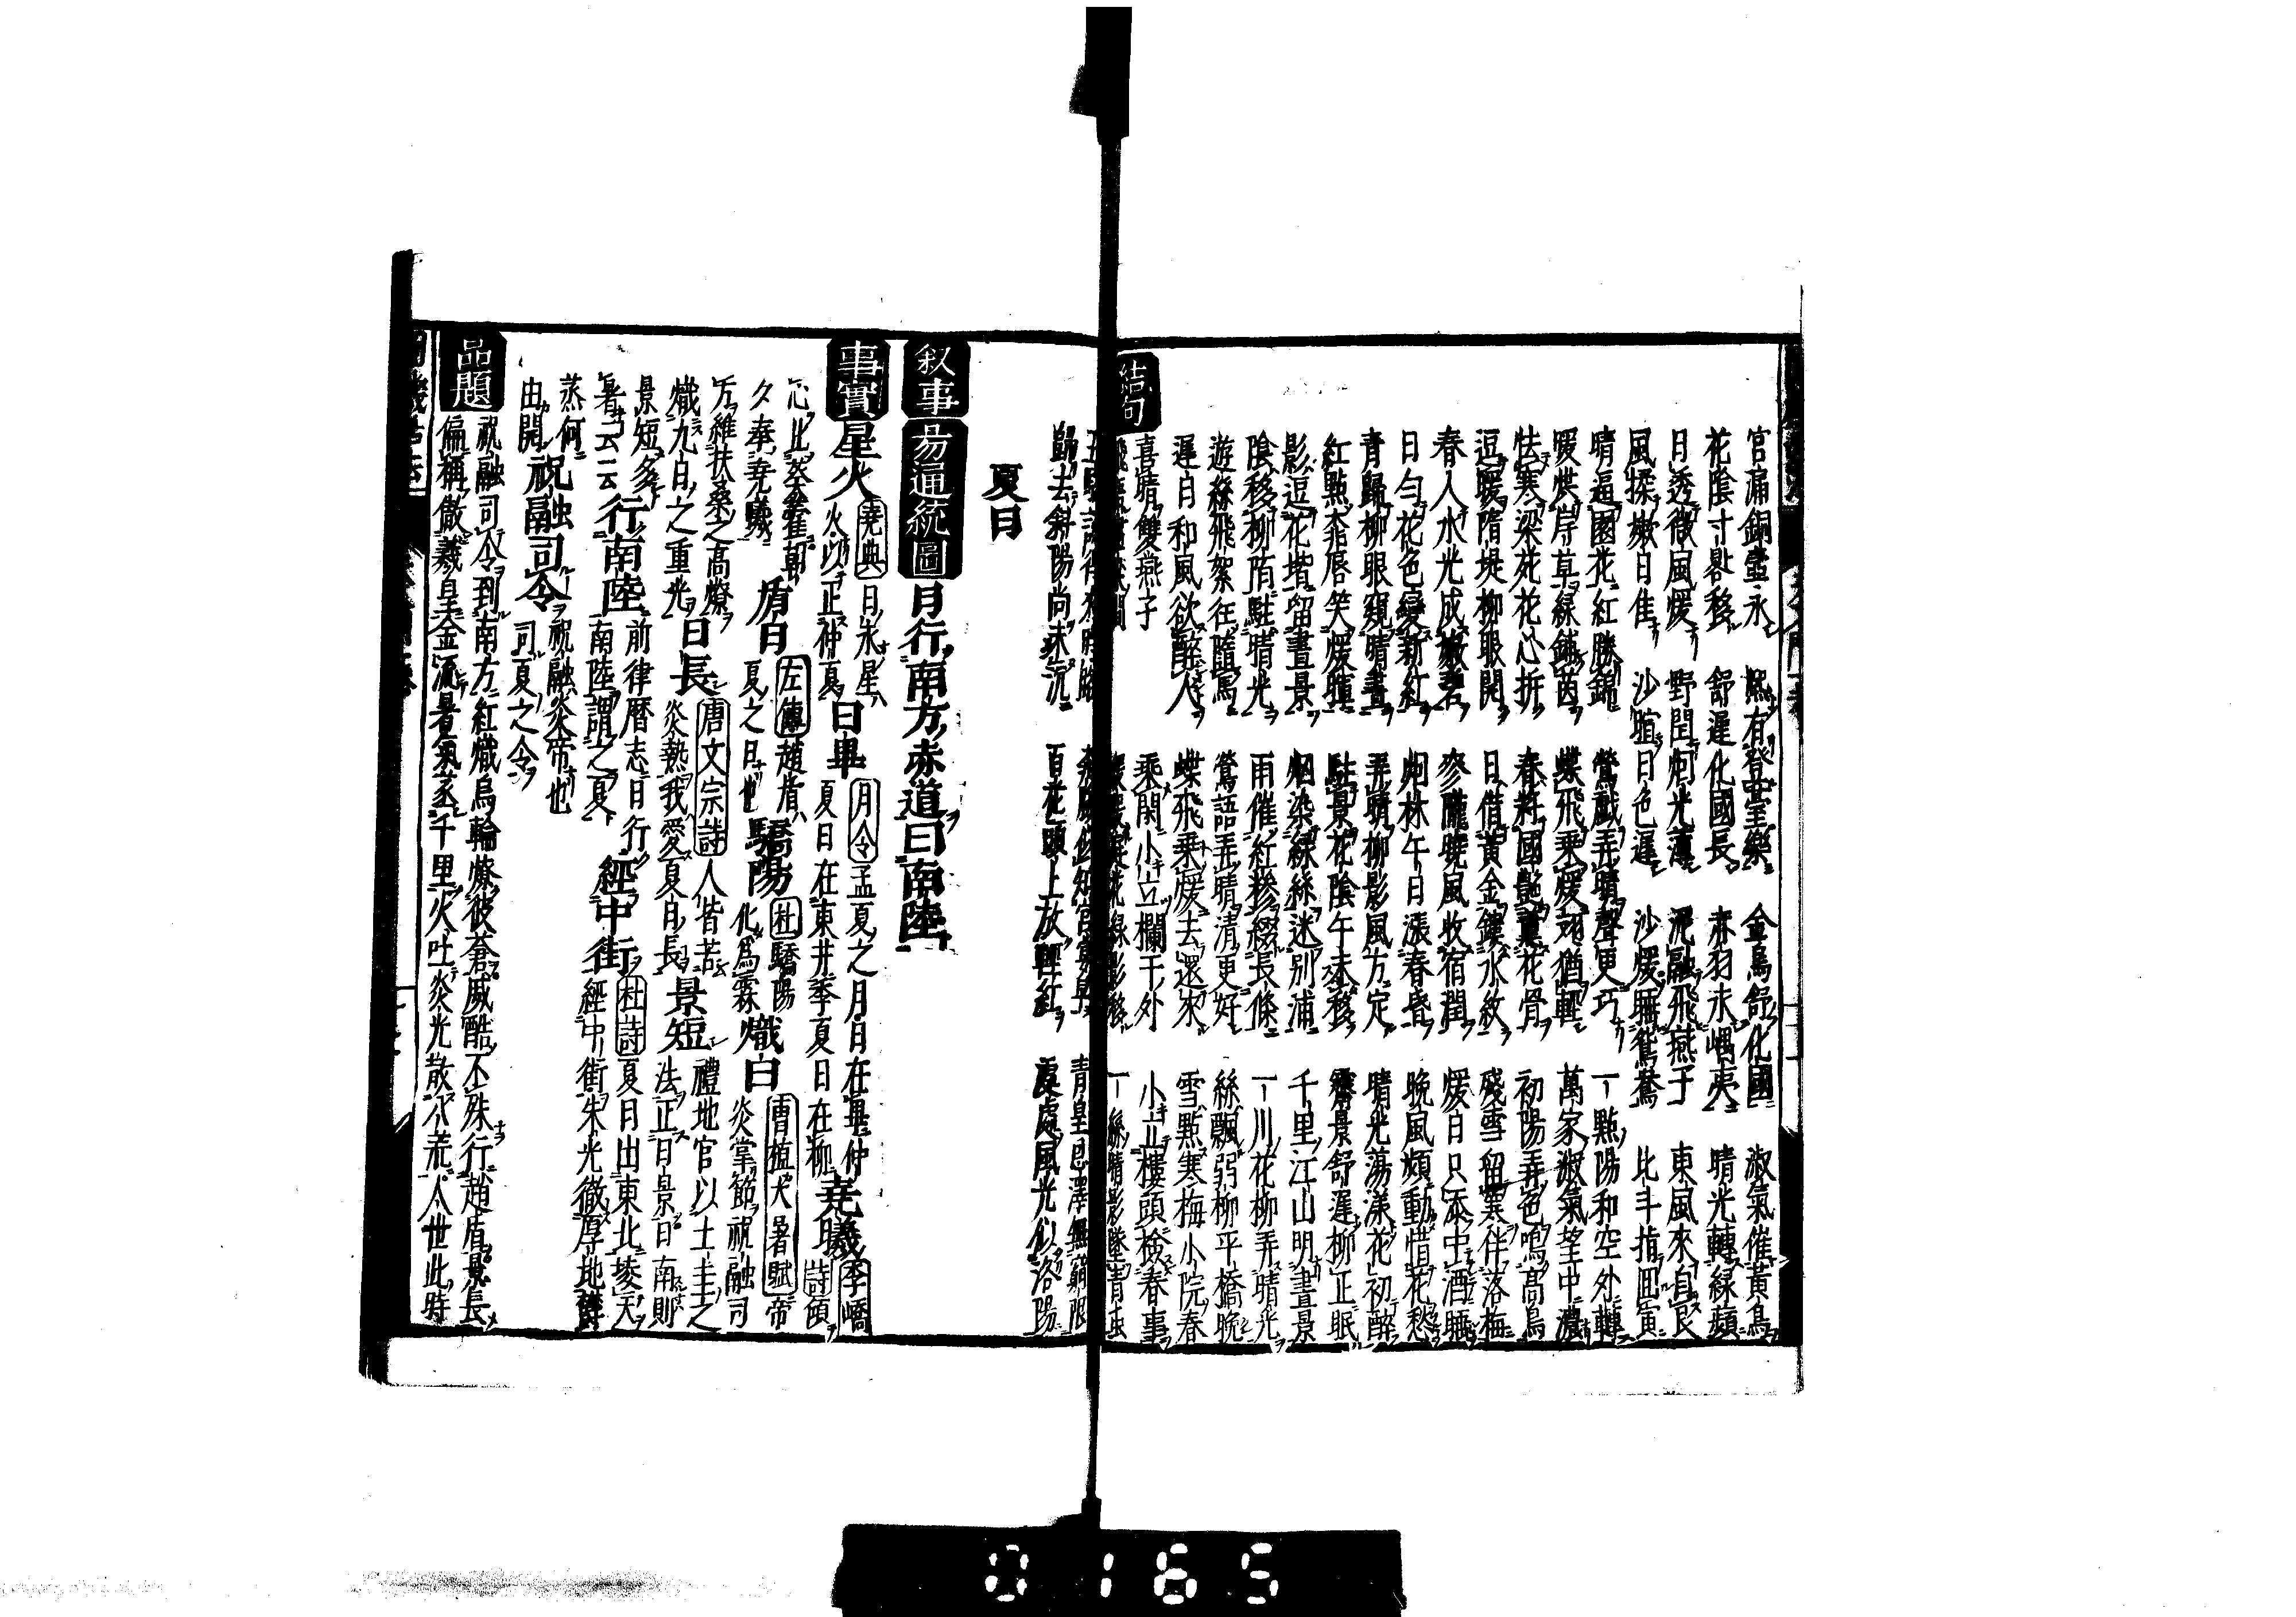 宮漏銅壷永 熈有登臺樂 金烏舒化國 淑氣催黄鳥
花陰寸晷移 舒遲化國長 赤羽永嵎夷 晴光轉緑蘋
日透微風煖 野閏烟光薄 泥融飛燕子 東風來自艮
風揉嫩日隹 沙暄日色遲 沙煖睡鴛鴦 北斗指回寅
晴逼園花紅勝錦 鶯戯弄晴聲更巧 一點陽和空外轉
暖烘岸草緑鋪茵 蝶飛乘煖翅猶輕 萬家淑氣望中濃
怯寒梁苑花心折 春粧國艶薫花骨 初陽弄色鳴髙鳥
逗暖隋堤柳眼開 日借黄金鏤水紋 殘雪留寒伴落梅
春入水光成嫩碧 麥隴曉風收宿潤 煖日只添中酒睡
日勻花色變新紅 烟林午日漲春昏 晚風頻動惜花愁
青歸柳眼窺晴晝 弄晴柳影風方定 晴光蕩漾花初醉
紅㸃杏唇笑煖暄 駐景花陰午未移 霽景舒遲柳正眠
影逗花堦留晝景 烟染緑絲迷别浦 千里江山明晝景
陰移柳陌駐晴光 雨催紅糝綴長條 一川花柳弄晴光
遊絲飛絮在隨馬 鶯語弄晴清更好 絲飄弱柳平橋晚
遲日和風欲醉人 蝶飛乘煖去還來 雪㸃寒梅小院春
喜晴雙燕子 乘閑小立欄干外 小立樓頭檢春事
結句
歸去斜陽尚未沉 百花頭上放輕紅 處處風光似洛陽
夏日
叙事 易通統圖 日行南方赤道曰南陸
事實 星火 堯典 日永星火以正仲夏 日畢 月令 孟夏之月日在畢仲夏日在東井季夏日在柳 堯曦 李嶠詩 傾心比葵藿朝夕奉堯曦 盾日 左傳 趙盾夏之日也 驕陽 杜 驕陽化爲霖 熾日 曹植大暑賦 帝炎掌節祝融司方維扶桑之高燎熾九日之重光 日長 唐文宗詩 人皆苦炎熱我愛夏日長 景短 禮地官以土圭之法正日景日南則景短多暑云云 行南陸 前律曆志日行南陸謂之夏 經中街 杜詩 夏日出東北陵天經中街朱光徹厚地鬱蒸何由開 祝融司令 祝融炎帝也司夏之令
品題 祝融司令到南方紅熾烏輪燎彼蒼威酷不殊行趙盾景長
偏稱傲羲皇金流暑氣蒸千里火吐炎光散八荒人世此時